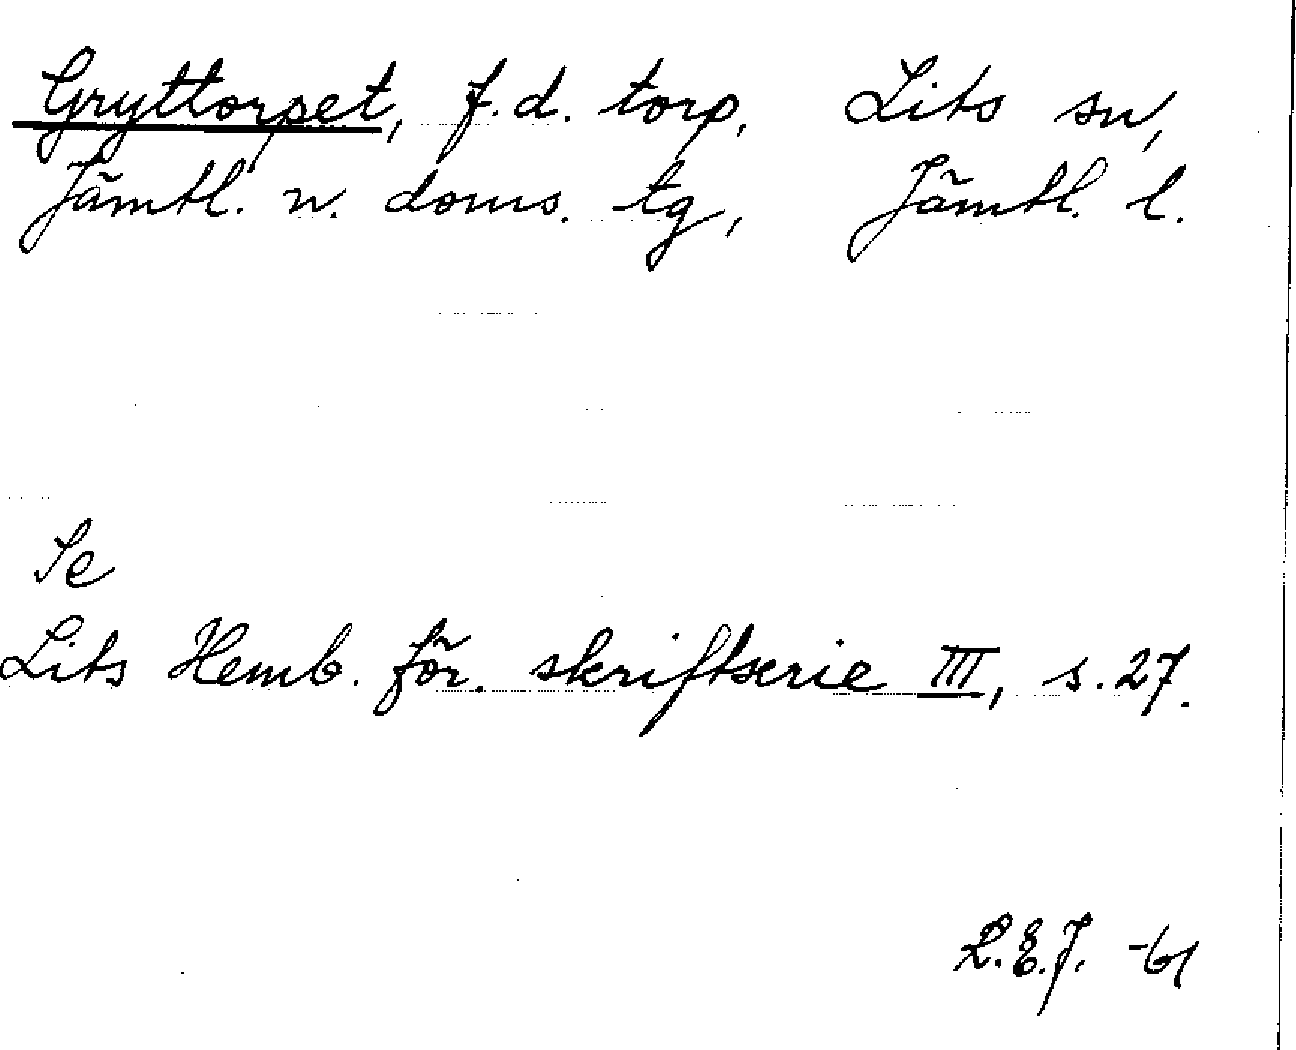 Gryttorpet, f.d. torp, Lits sn,
Jämtl. n. doms. tg, Jämtl. l.
Se
Lits Hemb. för. skriftserie III, s. 27.
L.E.J. -61